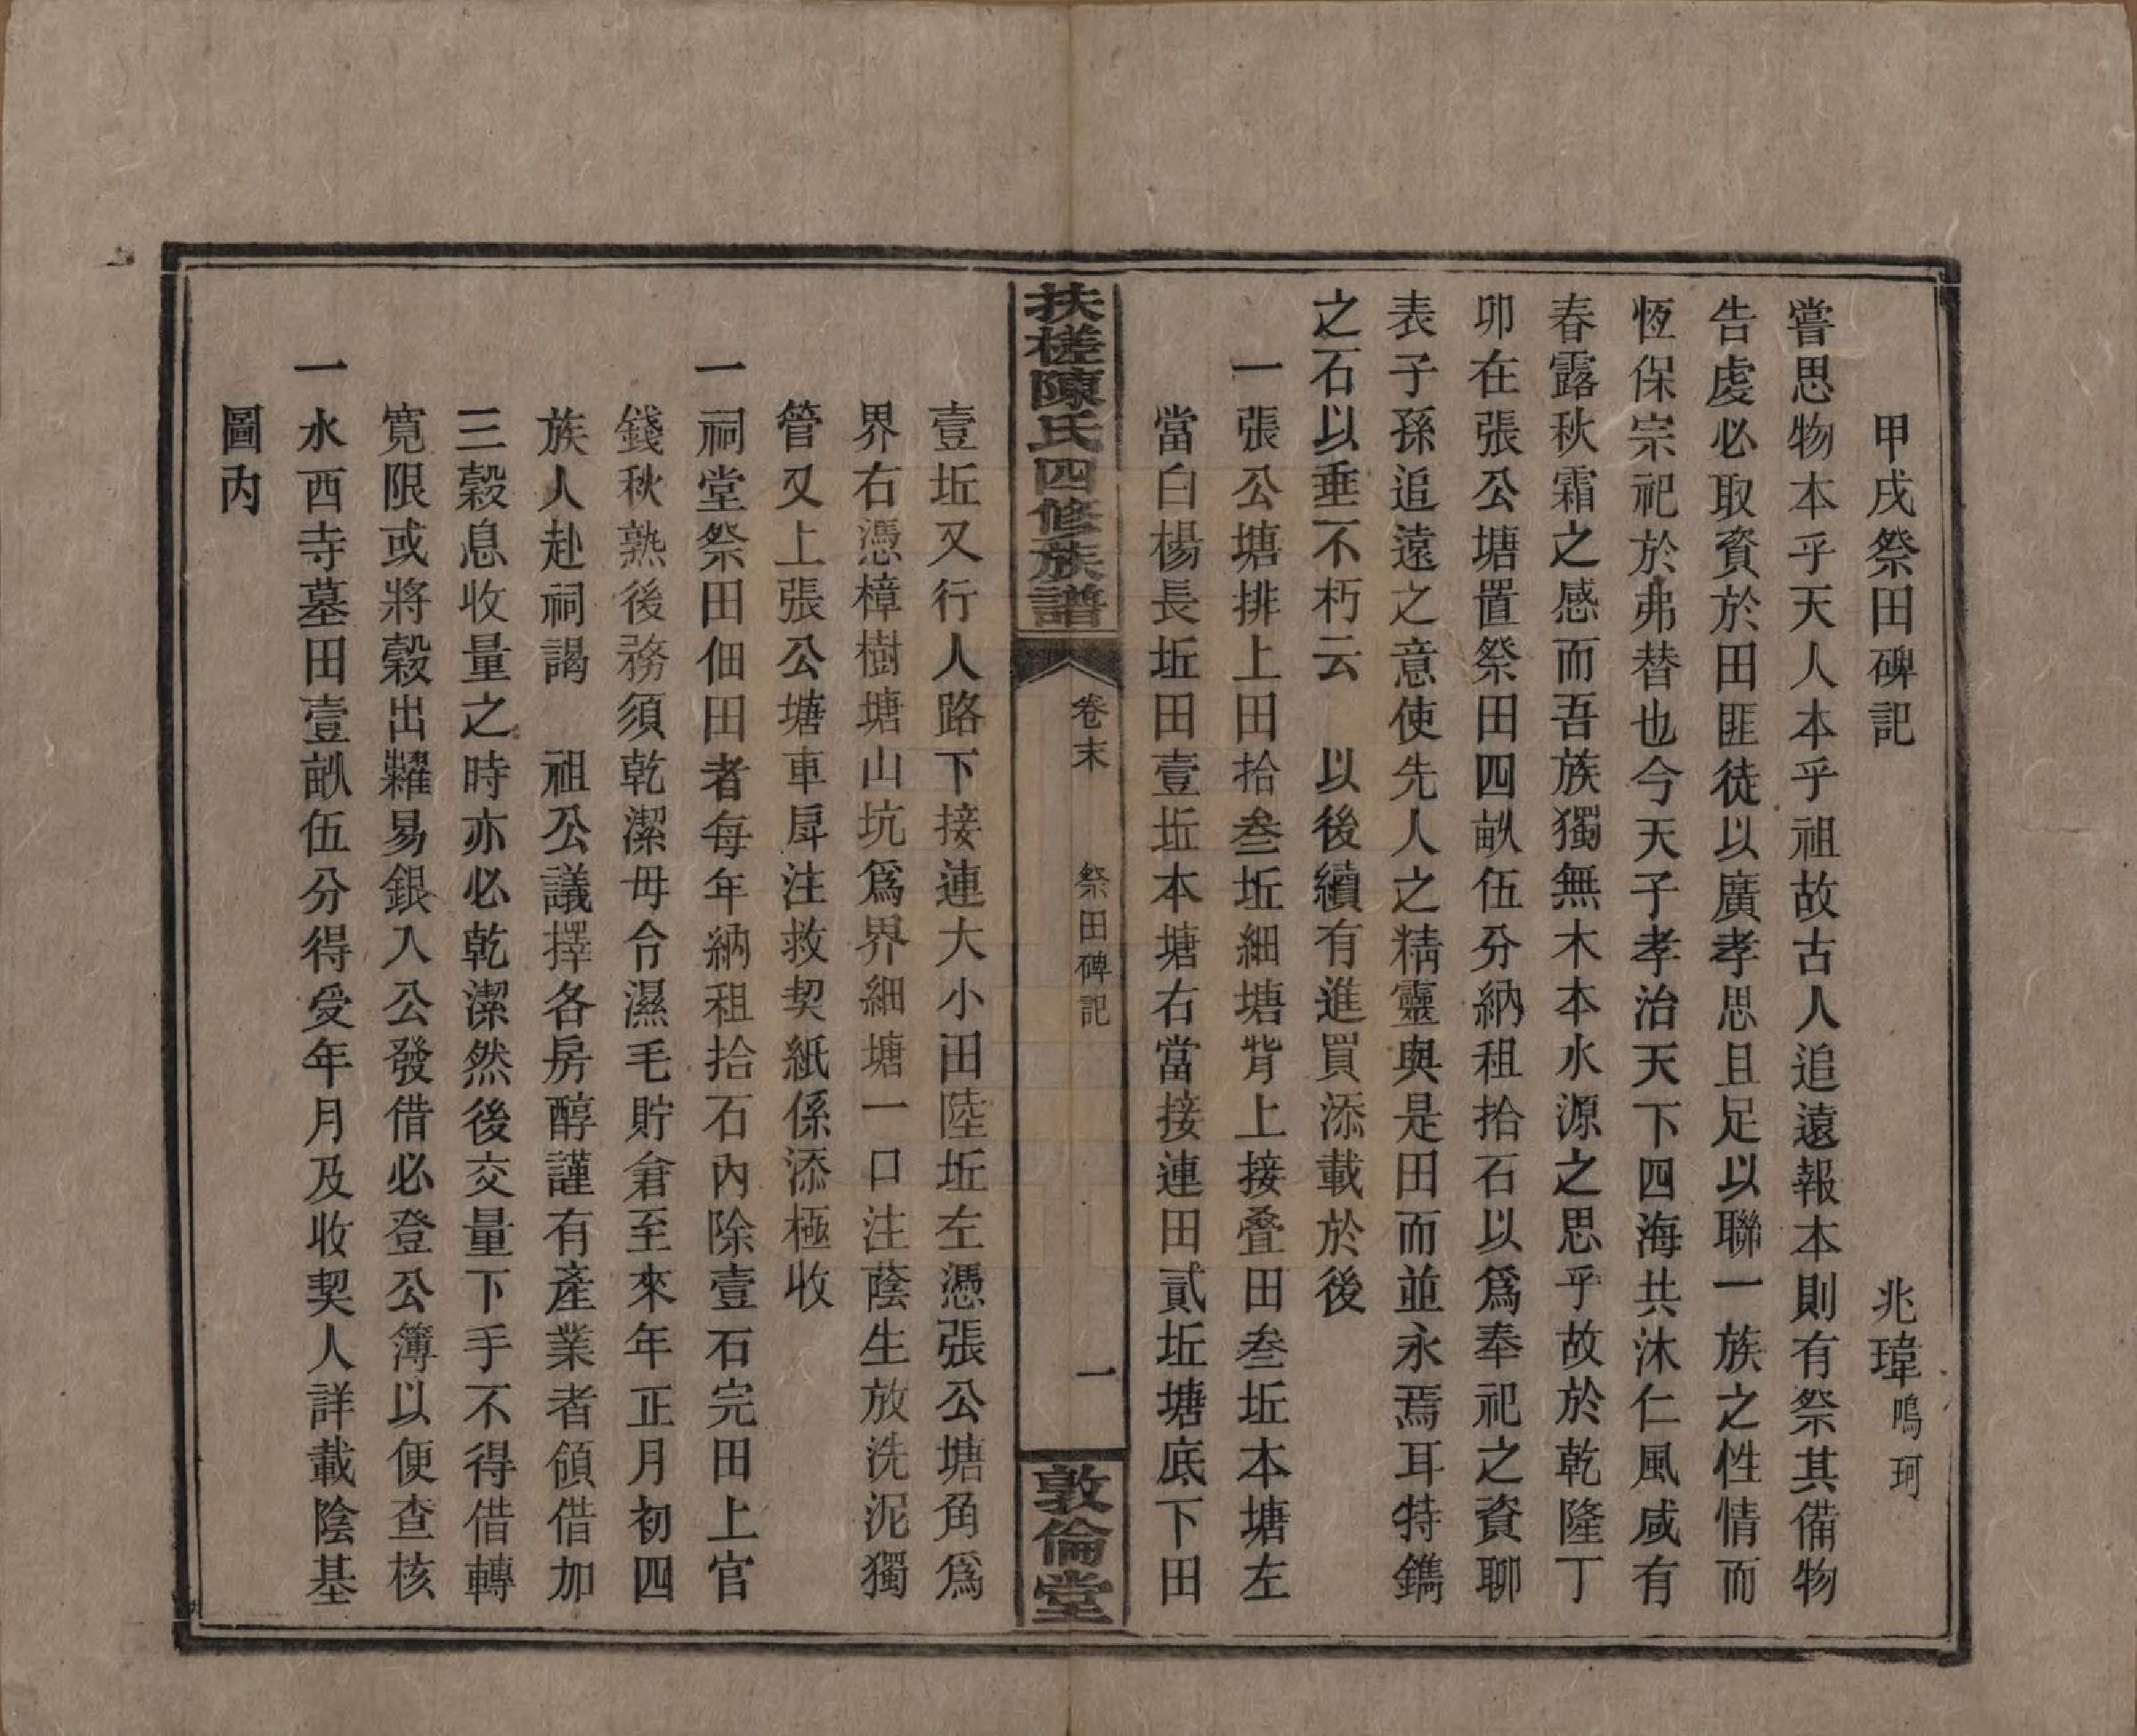 甲戌祭田碑記　兆瑋鳴珂
嘗思物本乎天人本乎祖故古人追遠報本則有祭其備物
告虔必取資於田匪徒以廣孝思且足以聯一族之性情而
恆保宗祀於弗替也今天子孝治天下四海共沐仁風咸有
春露秋霜之感而吾族獨無木本水源之思乎故於乾隆丁
卯在張公塘置祭田四畝伍分納租拾石以爲奉祀之資聊
表子孫追遠之意使先人之精靈與是田而並永焉耳特鐫
之石以垂不朽云　以後續有進買添載於後
一張公塘排上田拾叁坵細塘背上接叠田叁坵本塘左
當白楊長坵田壹坵本塘右當接連田貳坵塘底下田
扶槎陳氏四修族譜　卷末　祭田碑記　一　敦倫堂
壹坵又行人路下接連大小田陸坵左憑張公塘角爲
界右憑樟樹塘山坑爲界細塘一口注蔭生放洗泥獨
管又上張公塘車戽注救契紙係添極收
一祠堂祭田佃田者每年納租拾石內除壹石完田上官
錢秋熟後務須乾潔毋令濕毛貯倉至來年正月初四
族人赴祠謁　祖公議擇各房醇謹有產業者領借加
三穀息收量之時亦必乾潔然後交量下手不得借轉
寬限或將穀出糶易銀入公發借必登公簿以便查核
一水西寺墓田壹畝伍分得受年月及收契人詳載陰基
圖內